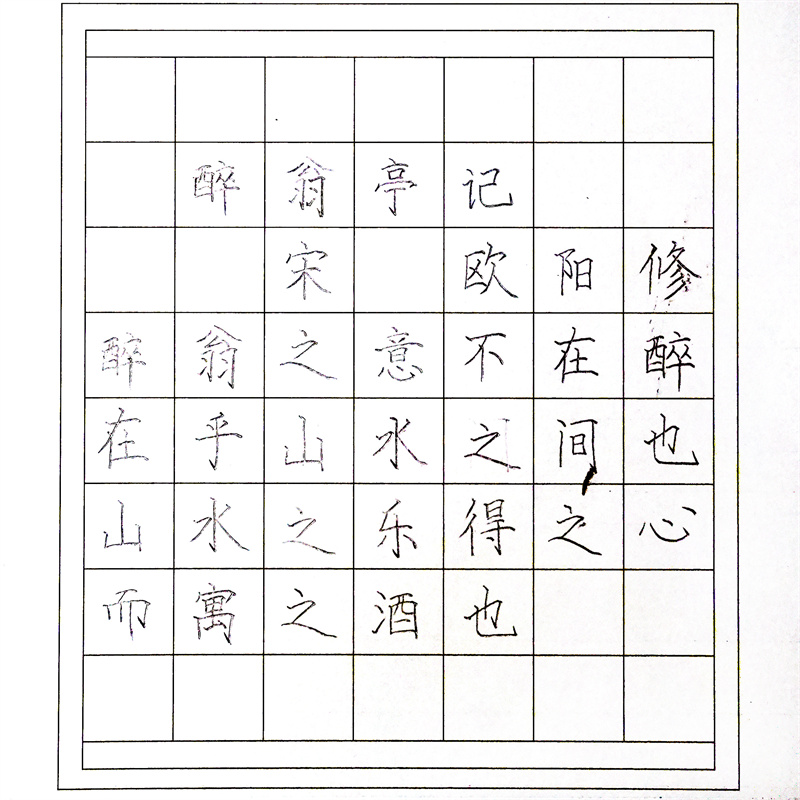 醉翁亭记
宋 欧阳修
醉翁之意不在醉
在乎山水之间也
山水之乐得之心
而寓之酒也